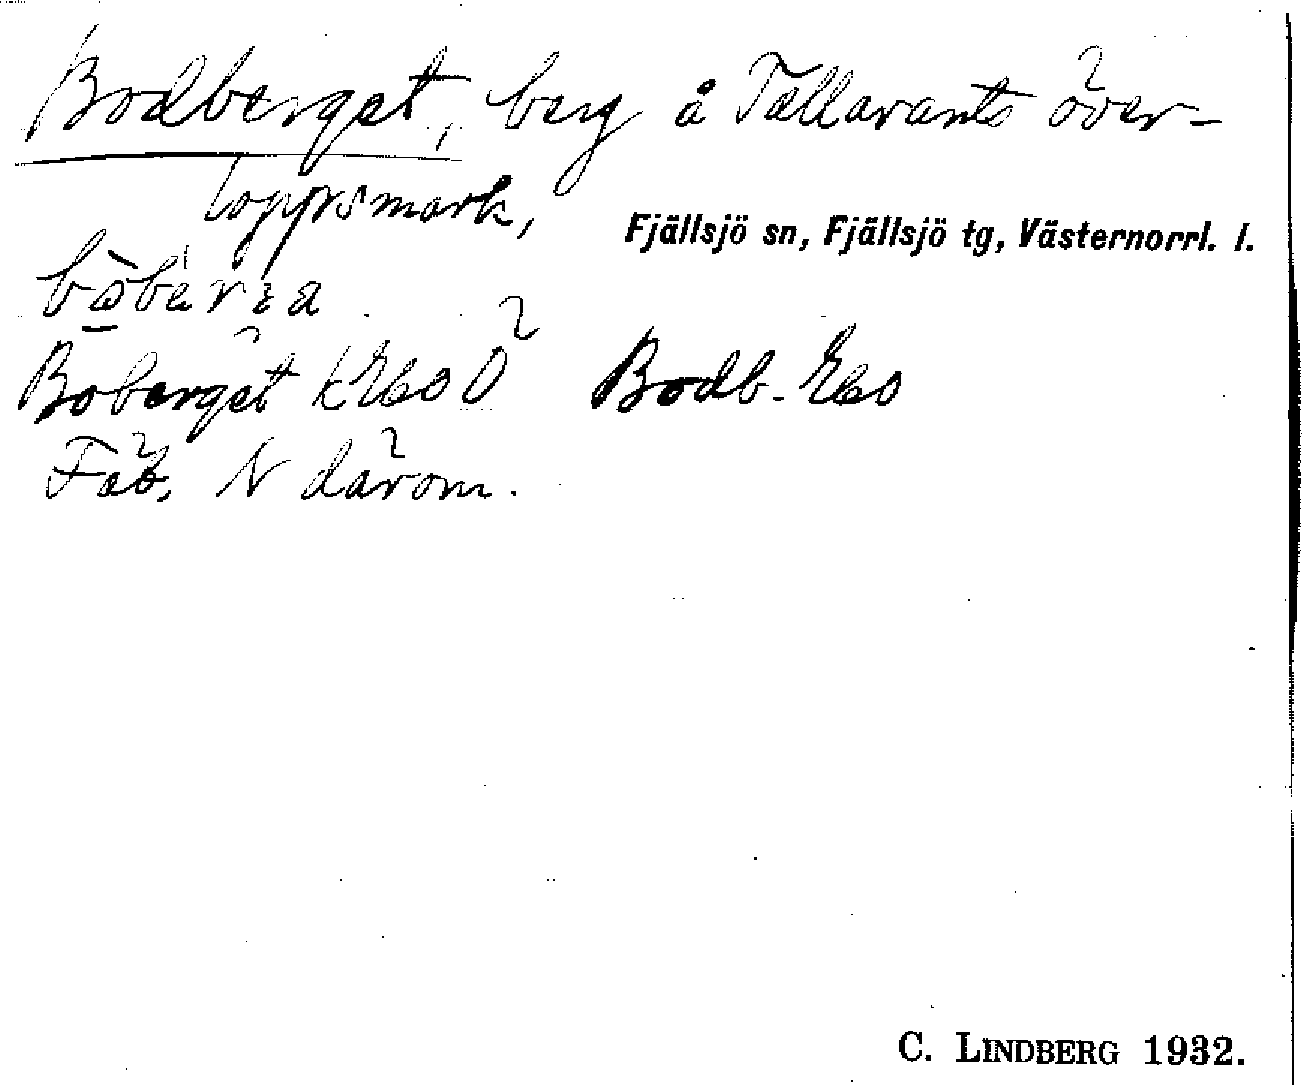 Bodberget, berg å Tallavants över-
loppsmark,
Fjällsjö sn, Fjällsjö tg, Västernorrl. l.
Boberget kEk60Ö Bodb. Ek60
Fäb. N därom.
C. LINDBERG 1932.